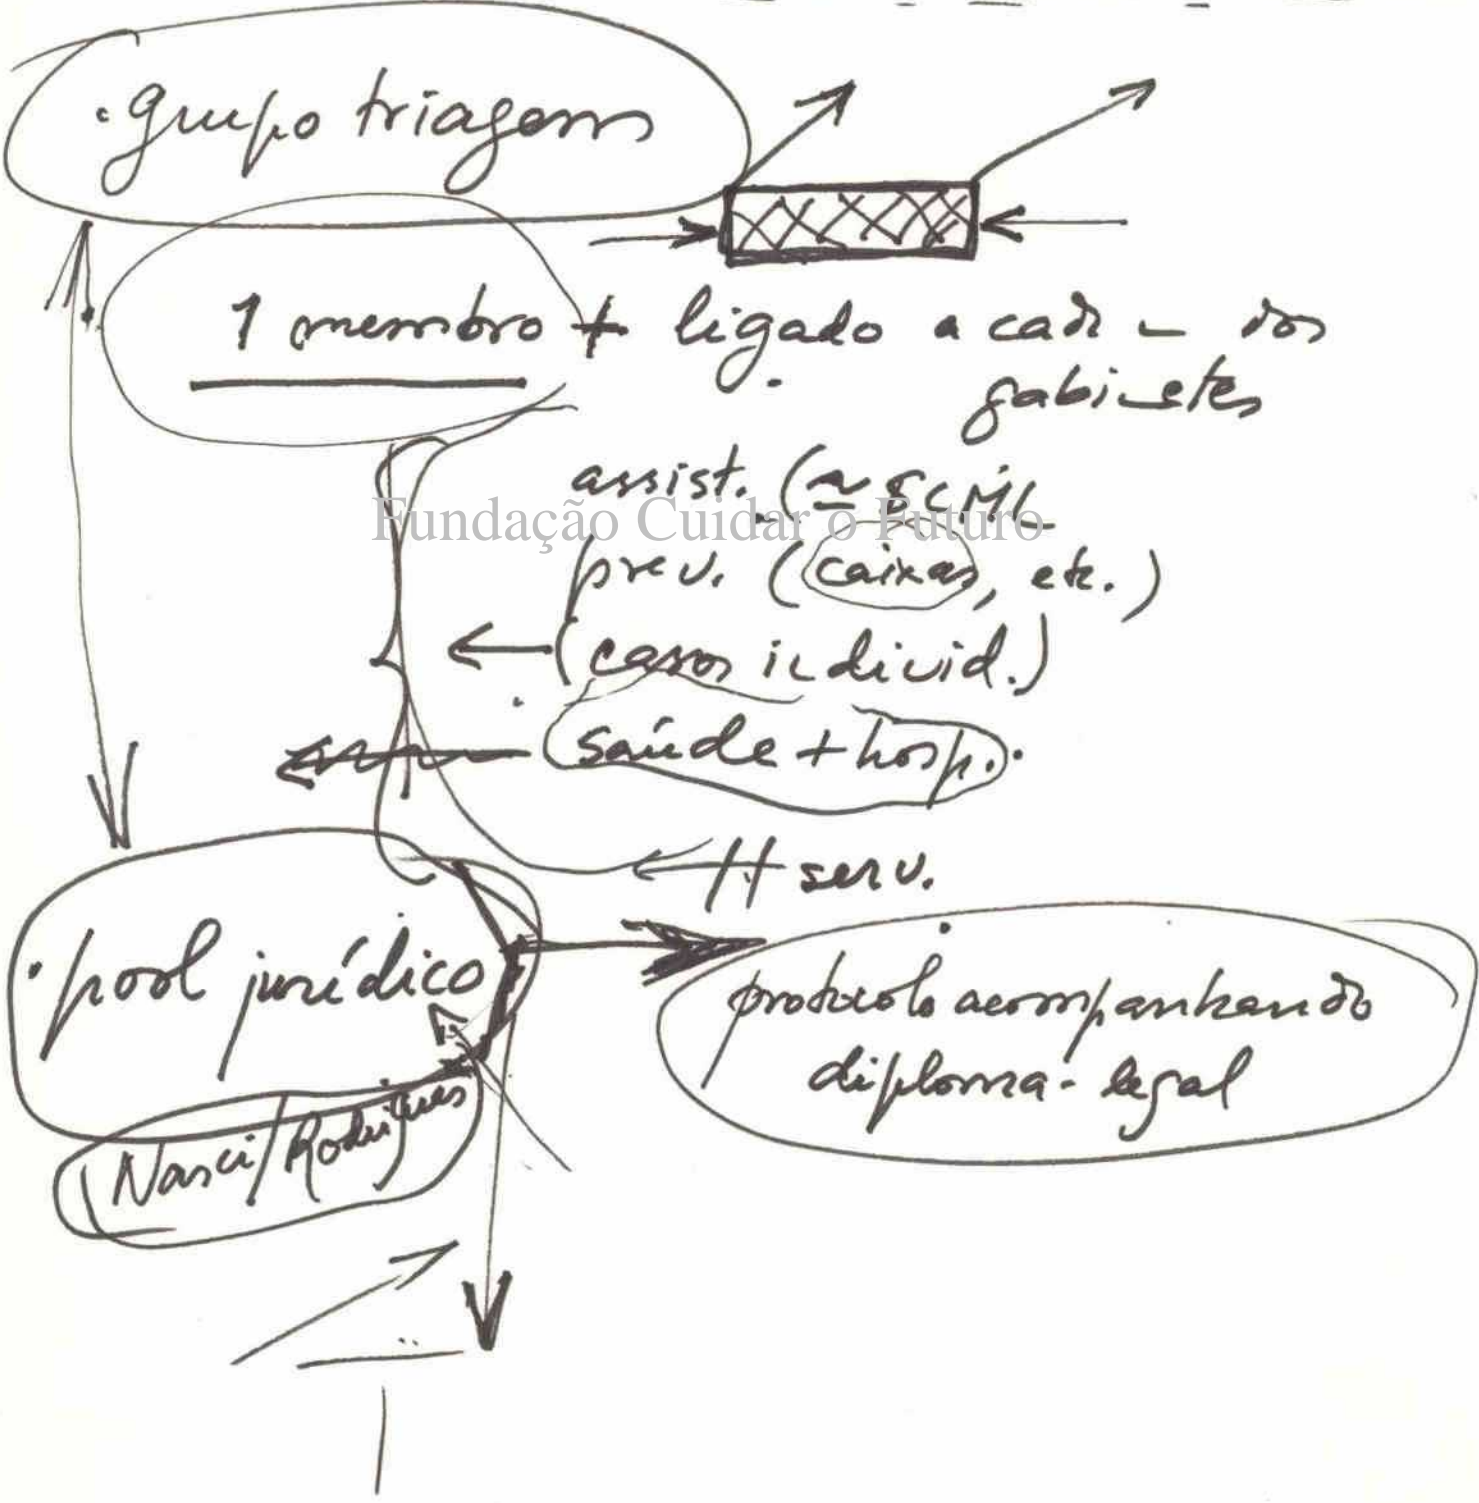 · grupo triagem
1 membro + ligado a cada um dos
gabinetes
assist. (≃ SCML
Fundação Cuidar o Futuro
prev. (caixas, etc.)
(casos individ.)
saúde + hosp.
// serv.
· pool jurídico
protocolo acompanhando
diploma-legal
Nasci/Rodrigues